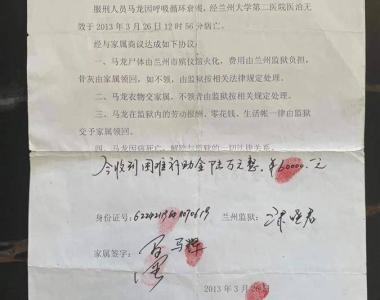 服刑人员马龙因呼吸循环衰竭，经兰州大学第二医院医治无
效于2013年3月26日12时56分病亡。
经与家属商议达成如下协议：
一、马龙尸体由兰州市殡仪馆火化，费用由监狱负担，
骨灰由家属领回，如不领，由监狱按相关法律规定处理。
二、马龙衣物交家属，不领者由监狱按相关规定处理。
三、马龙在监狱内的劳动报酬、零花钱、生活帐一律由监狱
交予家属领回。
四、马龙因病死亡，解除与监狱的一切法律关系。
今收到困难补助金陆万元整。¥60000.元
身份证号：
兰州监狱：
家属签字： 马辉
2013年3月26日